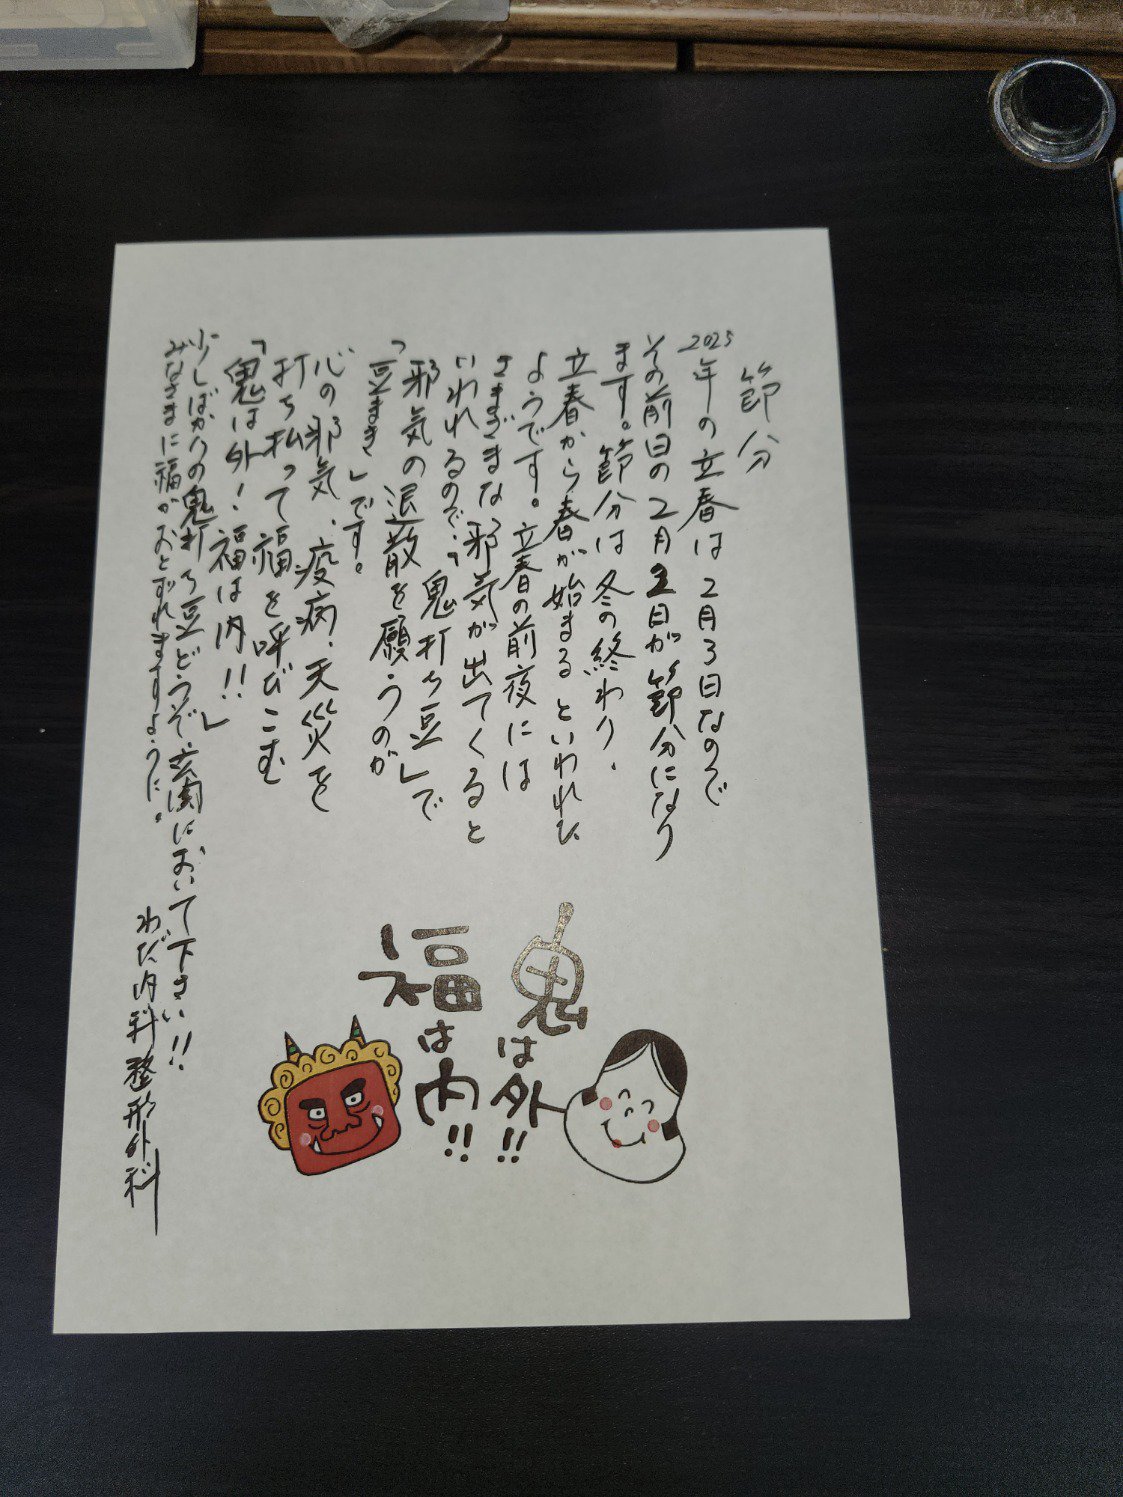 節分
2025年の立春は2月3日なので
その前日の2月2日が節分になり
ます。節分は冬の終わり、
立春から春が始まるといわれた
ようです。立春の前夜には
さまざまな邪気が出てくると
いわれるので、「鬼打ち豆」で
邪気の退散を願うのが
「豆まき」です。
心の邪気、疫病、天災を
打ち払って福を呼びこむ
「鬼は外!福は内!!」
少しばかりの鬼打ち豆どうぞ玄関において下さい!!
みなさまに福がおとずれますように。
わだ内科整形外科
鬼は外!!
福は内!!